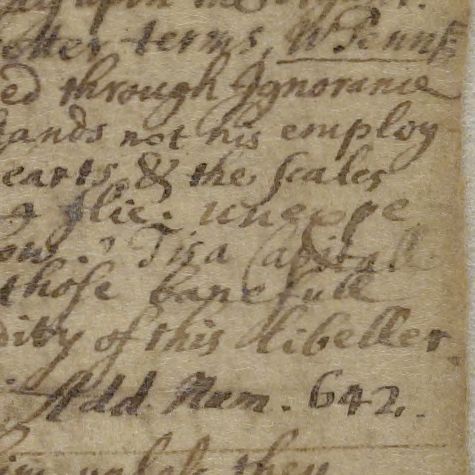 upon
better terms, W Penns
ed through Ignorance
hands not his employ
earts & the scales
a flie: unexpe
Tis a Capitall
those banefull
dity of this Libeller
Add. Num. 642.
unless they